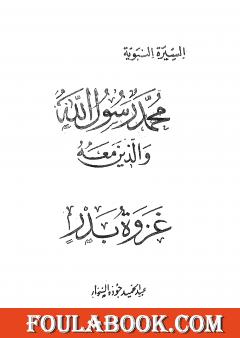 السيرة النبوية
محمد رسول الله
والذين معه
غزوة بدر
عبد الحميد جوده السحار
FOULABOOK.COM